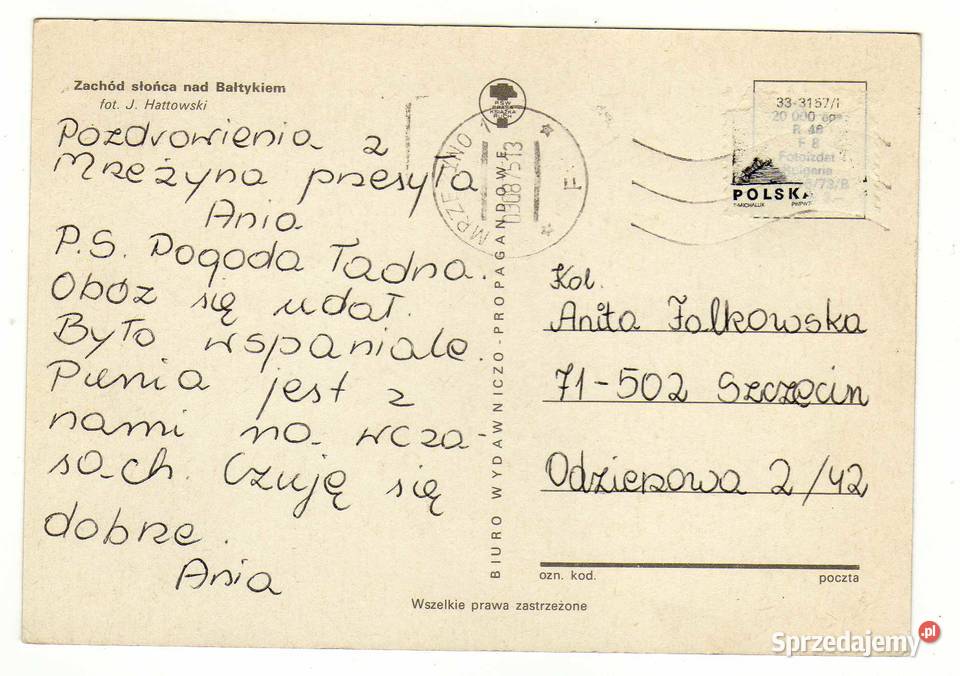 Zachód słońca nad Bałtykiem
fot. J. Hattowski
Pozdrowienia z
Mrzeżyna przesyła
Ania
P.S. Pogoda ładna.
Obóz się udał.
Było wspaniale.
Punia jest z
nami na wcza-
sach. Czuję się
dobrze.
Ania
PSW PRASA
KSIĄŻKA
RUCH
MRZEŻYNO 1
030875 13
F
BIURO WYDAWNICZO-PROPAGANDOWE
33-3157/I
20 000 egz.
R 46
F 8
Fotoizdat
Bulgaria
/73/B
POLSKA
T.MICHALUK PWPW
Kol.
Anita Falkowska
71-502 Szczecin
Odzieżowa 2/42
ozn. kod.
poczta
Wszelkie prawa zastrzeżone
Sprzedajemy.pl